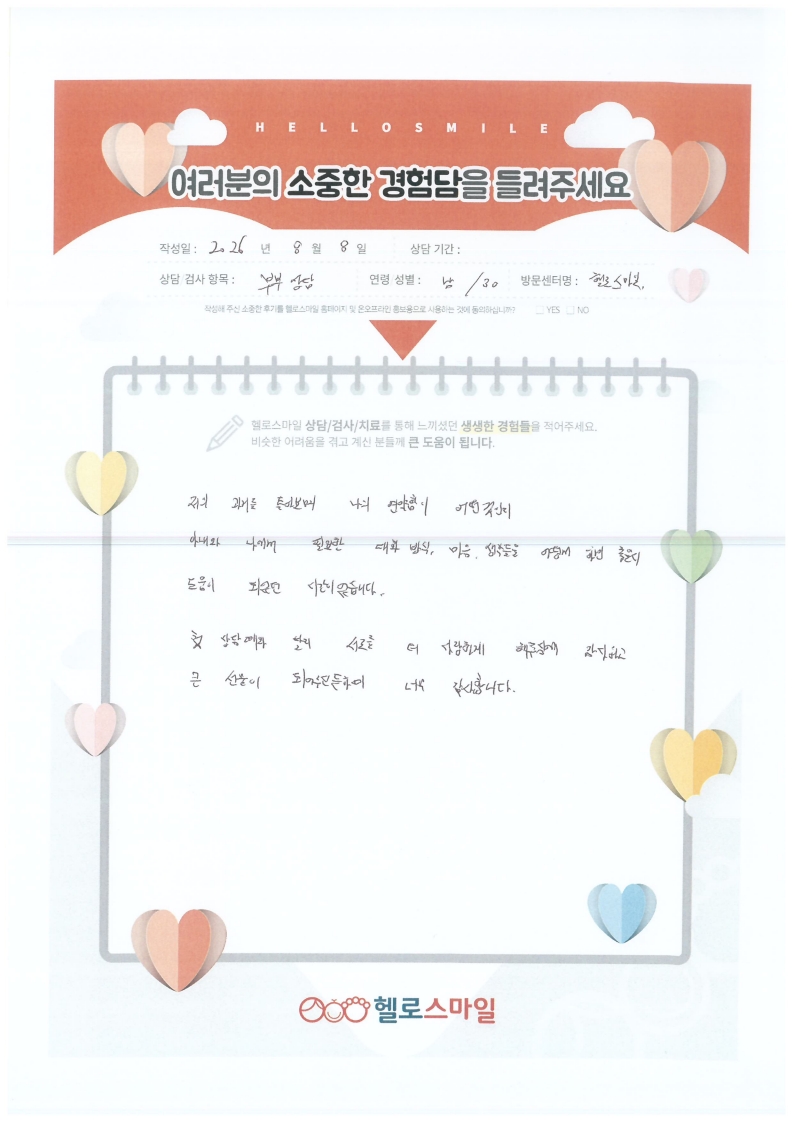 HELLOSMILE
여러분의 소중한 경험담을 들려주세요
작성일 : 2026 년 8 월 8 일 상담 기간 :
상담 검사 항목 : 부부 상담 연령 성별 : 남 / 30 방문센터명 : 헬로스마일.
작성해 주신 소중한 후기를 헬로스마일 홈페이지 및 온오프라인 홍보용으로 사용하는 것에 동의하십니까? YES NO
헬로스마일 상담/검사/치료를 통해 느끼셨던 생생한 경험들을 적어주세요.
비슷한 어려움을 겪고 계신 분들께 큰 도움이 됩니다.
저의 과거를 돌아보며 나의 연약함이 어떤것인지
아내와 나에게 필요한 대화 방식, 마음, 어떻게 하면 좋은지
도움이 되었던 시간이였습니다.
상담때와 달리 서로를 더 사랑하게 해주심에 감사하고
큰 선물이 너무 감사합니다.
헬로스마일